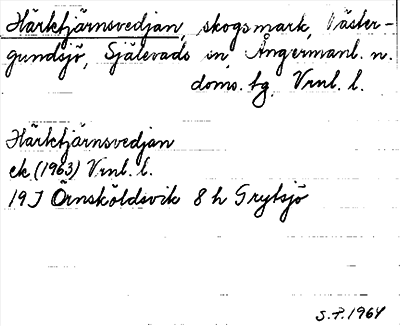 Härktjärnsvedjan, skogsmark, Väster-
gundsjö, Själevads sn, Ångermanl. n.
doms. tg, Vrnl. l.
Härktjärnsvedjan
ek. (1963) Vrnl. l.
19 J Örnsköldsvik 8 h Grytsjö
S.P. 1964